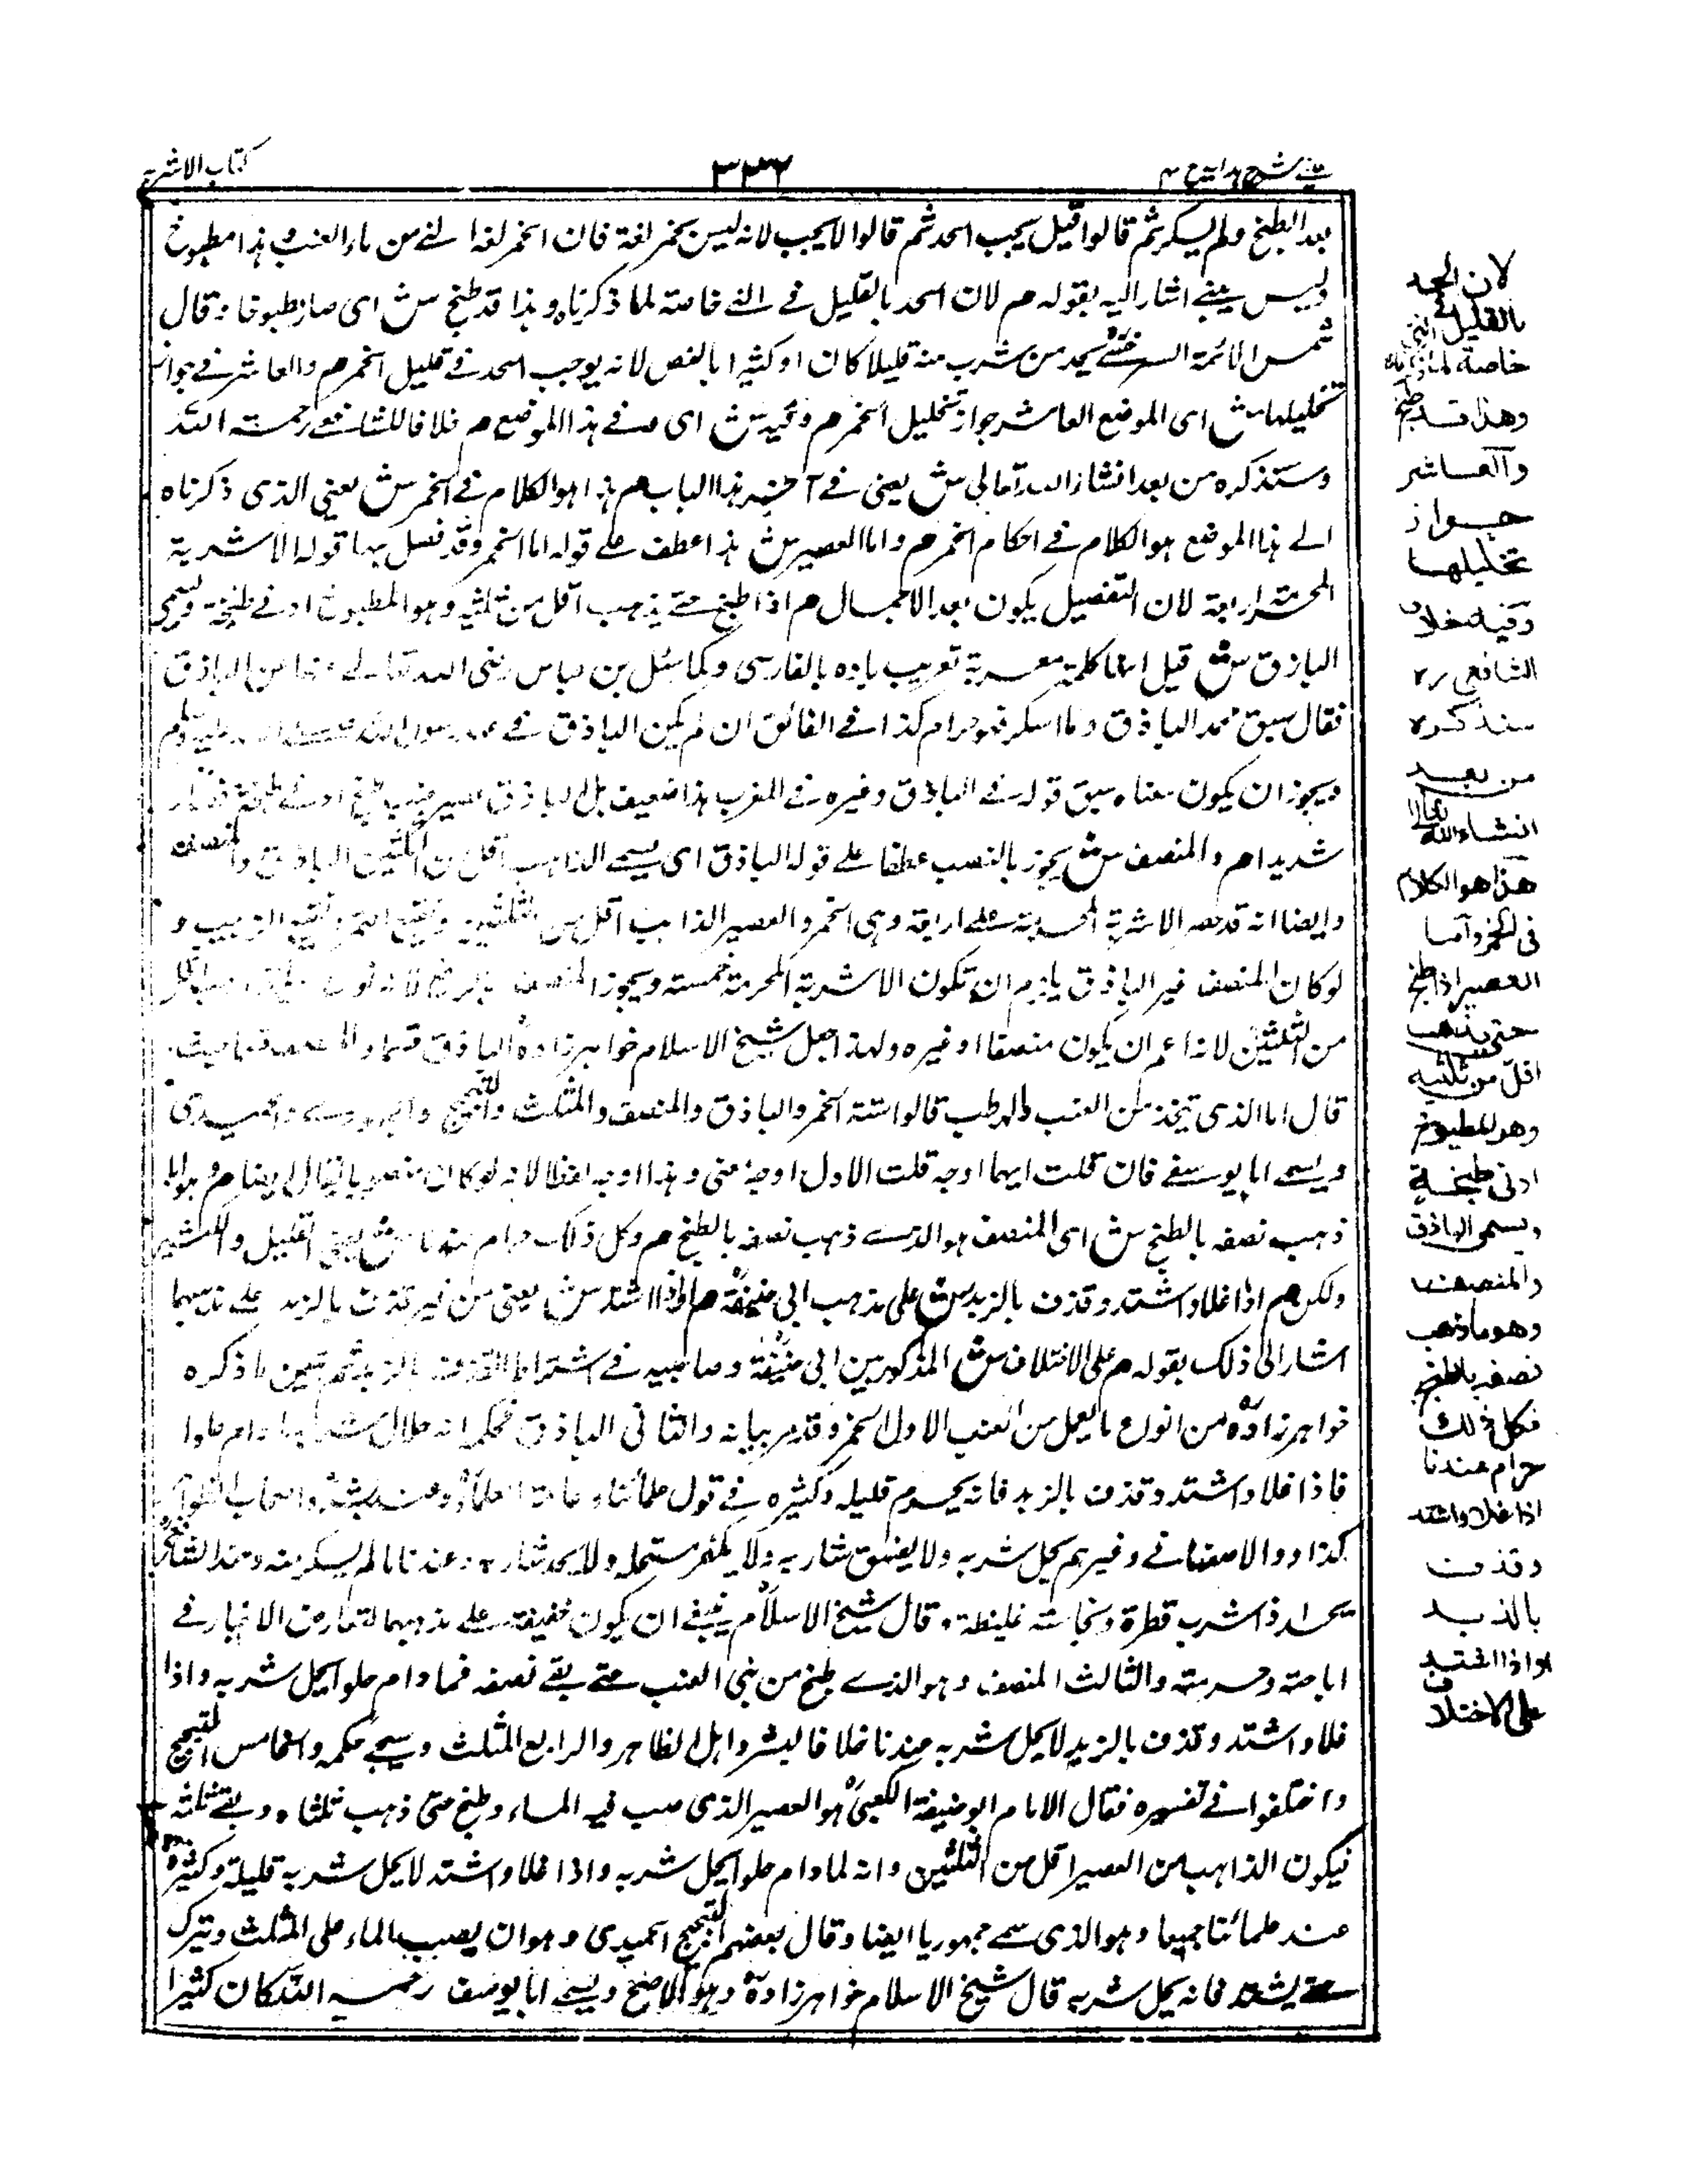 عيني شرح هدايه ج ٤
٣٣٢
كتاب الاشربة
بعد الطبخ ولم يسكر ثم قالوا قيل يجب الحد ثم قالوا لا يجب لانه ليس بخمر لغة فان الخمر لغة النى من ماء العنب وهذا مطبوخ
وليس بنى اشار اليه بقوله م لان الحد بالقليل فى النى خاصة لما ذكرناه وهذا قد طبخ ش اى صار مطبوخا وقال
شمس الائمة السرخسى يحد من شرب منه قليلا كان او كثيرا بالنص لانه يوجب الحد فى قليل الخمر م والعاشر فى جواز
تخليلها ش اى الموضع العاشر جواز تخليل الخمر م وفيه ش اى وفى هذا الموضع م خلافا للشافعى رحمة الله
وسنذكره من بعد انشاء الله تعالى ش يعنى فى آخر هذا الباب م هذا هو الكلام فى الخمر ش يعنى الذى ذكرناه
الى هذا الموضع هو الكلام فى احكام الخمر م واما العصير ش هذا عطف على قوله اما الخمر وقد فصل بها قوله الاشربة
المحرمة اربعة لان التفصيل يكون بعد الاجمال م اذا طبخ حتى يذهب اقل من ثلثيه وهو المطبوخ ادنى طبخة ويسمى
الباذق ش قيل انها كلمة معربة تعريب باده بالفارسى وكما سئل بن عباس رضى الله تعالى عنهما عن الباذق
فقال سبق محمد الباذق وما اسكر فهو حرام كذا فى الفائق ان لم يكن الباذق فى عهد رسول الله صلى الله عليه وسلم
ويجوز ان يكون معناه سبق قوله فى الباذق وغيره فى المغرب هذا ضعيف بل الباذق عصير عنب طبخ ادنى طبخة فصار
شديدا م والمنصف ش يجوز بالنصب عطفا على قوله الباذق اى يسمى الذاهب اقل من الثلثين الباذق والمنصف
وايضا انه قد حصر الاشربة المحرمة على اربعة وهى الخمر والعصير الذاهب اقل من الثلثين ونقيع التمر ونقيع الزبيب و
لو كان المنصف غير الباذق يلزم ان تكون الاشربة المحرمة خمسة ويجوز المنصف بالرفع
من الثلثين لانه اعم ان يكون منصفا او غيره ولهذا جعل شيخ الاسلام خواهر زاده الباذق قسما والمنصف قسما حيث
قال اما الذى يتخذ من العنب والرطب قالوا ستة الخمر والباذق والمنصف والمثلث والبختج والجمهورى والحميدى
ويسمى ابا يوسفى فان قلت ايهما اوجه قلت الاول اوجه معنى وهذا اوجه لفظا لانه لو كان منصوبا لقال ايضا م وهو ما
ذهب نصفه بالطبخ ش اى المنصف هو الذى ذهب نصفه بالطبخ م وكل ذلك حرام عندنا ش يعنى القليل والكثير
ولكن م اذا غلا واشتد وقذف بالزبد ش على مذهب ابى حنيفة م او اذا اشتد ش يعنى من غير قذف بالزبد على مذهبهما
اشار الى ذلك بقوله م على الاختلاف ش المذكور بين ابى حنيفة وصاحبيه فى اشتراط القذف بالزبد ثم تبين ما ذكره
خواهر زاده من انواع ما يعمل من العنب الاول الخمر وقد مر بيانه والثانى الباذق فحكمه انه حلال شربه ما دام حلوا
فاذا غلا واشتد وقذف بالزبد فانه يحرم قليله وكثيره فى قول علمائنا وعامة العلماء وعند بشر واصحاب الظواهر
كداود الاصفهانى وغيرهم يحل شربه ولا يفسق شاربه ولا يكفر مستحله ولا يحد شاربه وعندنا ما لم يسكر منه وعند الشافعى
يحد اذا شرب قطرة ونجاسته غليظة وقال شيخ الاسلام ينبغى ان يكون خفيفة على مذهبهما لتعارض الاخبار فى
اباحته وحرمته والثالث المنصف وهو الذى طبخ من نى العنب حتى بقى نصفه فما دام حلوا يحل شربه واذا
غلا واشتد وقذف بالزبد لا يحل شربه عندنا خلافا لبشر واهل الظاهر والرابع المثلث وسيجئ حكمه والخامس البختج
واختلفوا فى تفسيره فقال الامام ابو حنيفة الكعبى هو العصير الذى صب فيه الماء وطبخ حتى ذهب ثلثاه وبقى ثلثه
فيكون الذاهب من العصير اقل من الثلثين وانه لما دام حلوا يحل شربه واذا غلا واشتد لا يحل شربه قليله وكثيره
عند علمائنا جميعا وهو الذى سمى جمهوريا ايضا وقال بعضهم البختج الحميدى وهو ان يصب الماء على المثلث ويترك
حتى يشتد فانه يحل شربه قال شيخ الاسلام خواهر زاده وهو الاصح ويسمى ابا يوسف رحمه الله كان كثيرا
لان الحد
بالقليل فى النى
خاصة لما ذكرناه
وهذا قد طبخ
والعاشر
جواز
تخليلها
وفيه خلاف
الشافعى رح
سنذكره
من بعد
انشاء الله تعالى
هذا هو الكلام
فى الخمر واما
العصير اذا طبخ
حتى يذهب
اقل من ثلثيه
وهو المطبوخ
ادنى طبخة
ويسمى الباذق
والمنصف
وهو ما ذهب
نصفه بالطبخ
فكل ذلك
حرام عندنا
اذا غلا واشتد
وقذف
بالزبد
او اذا اشتد
على الاختلاف